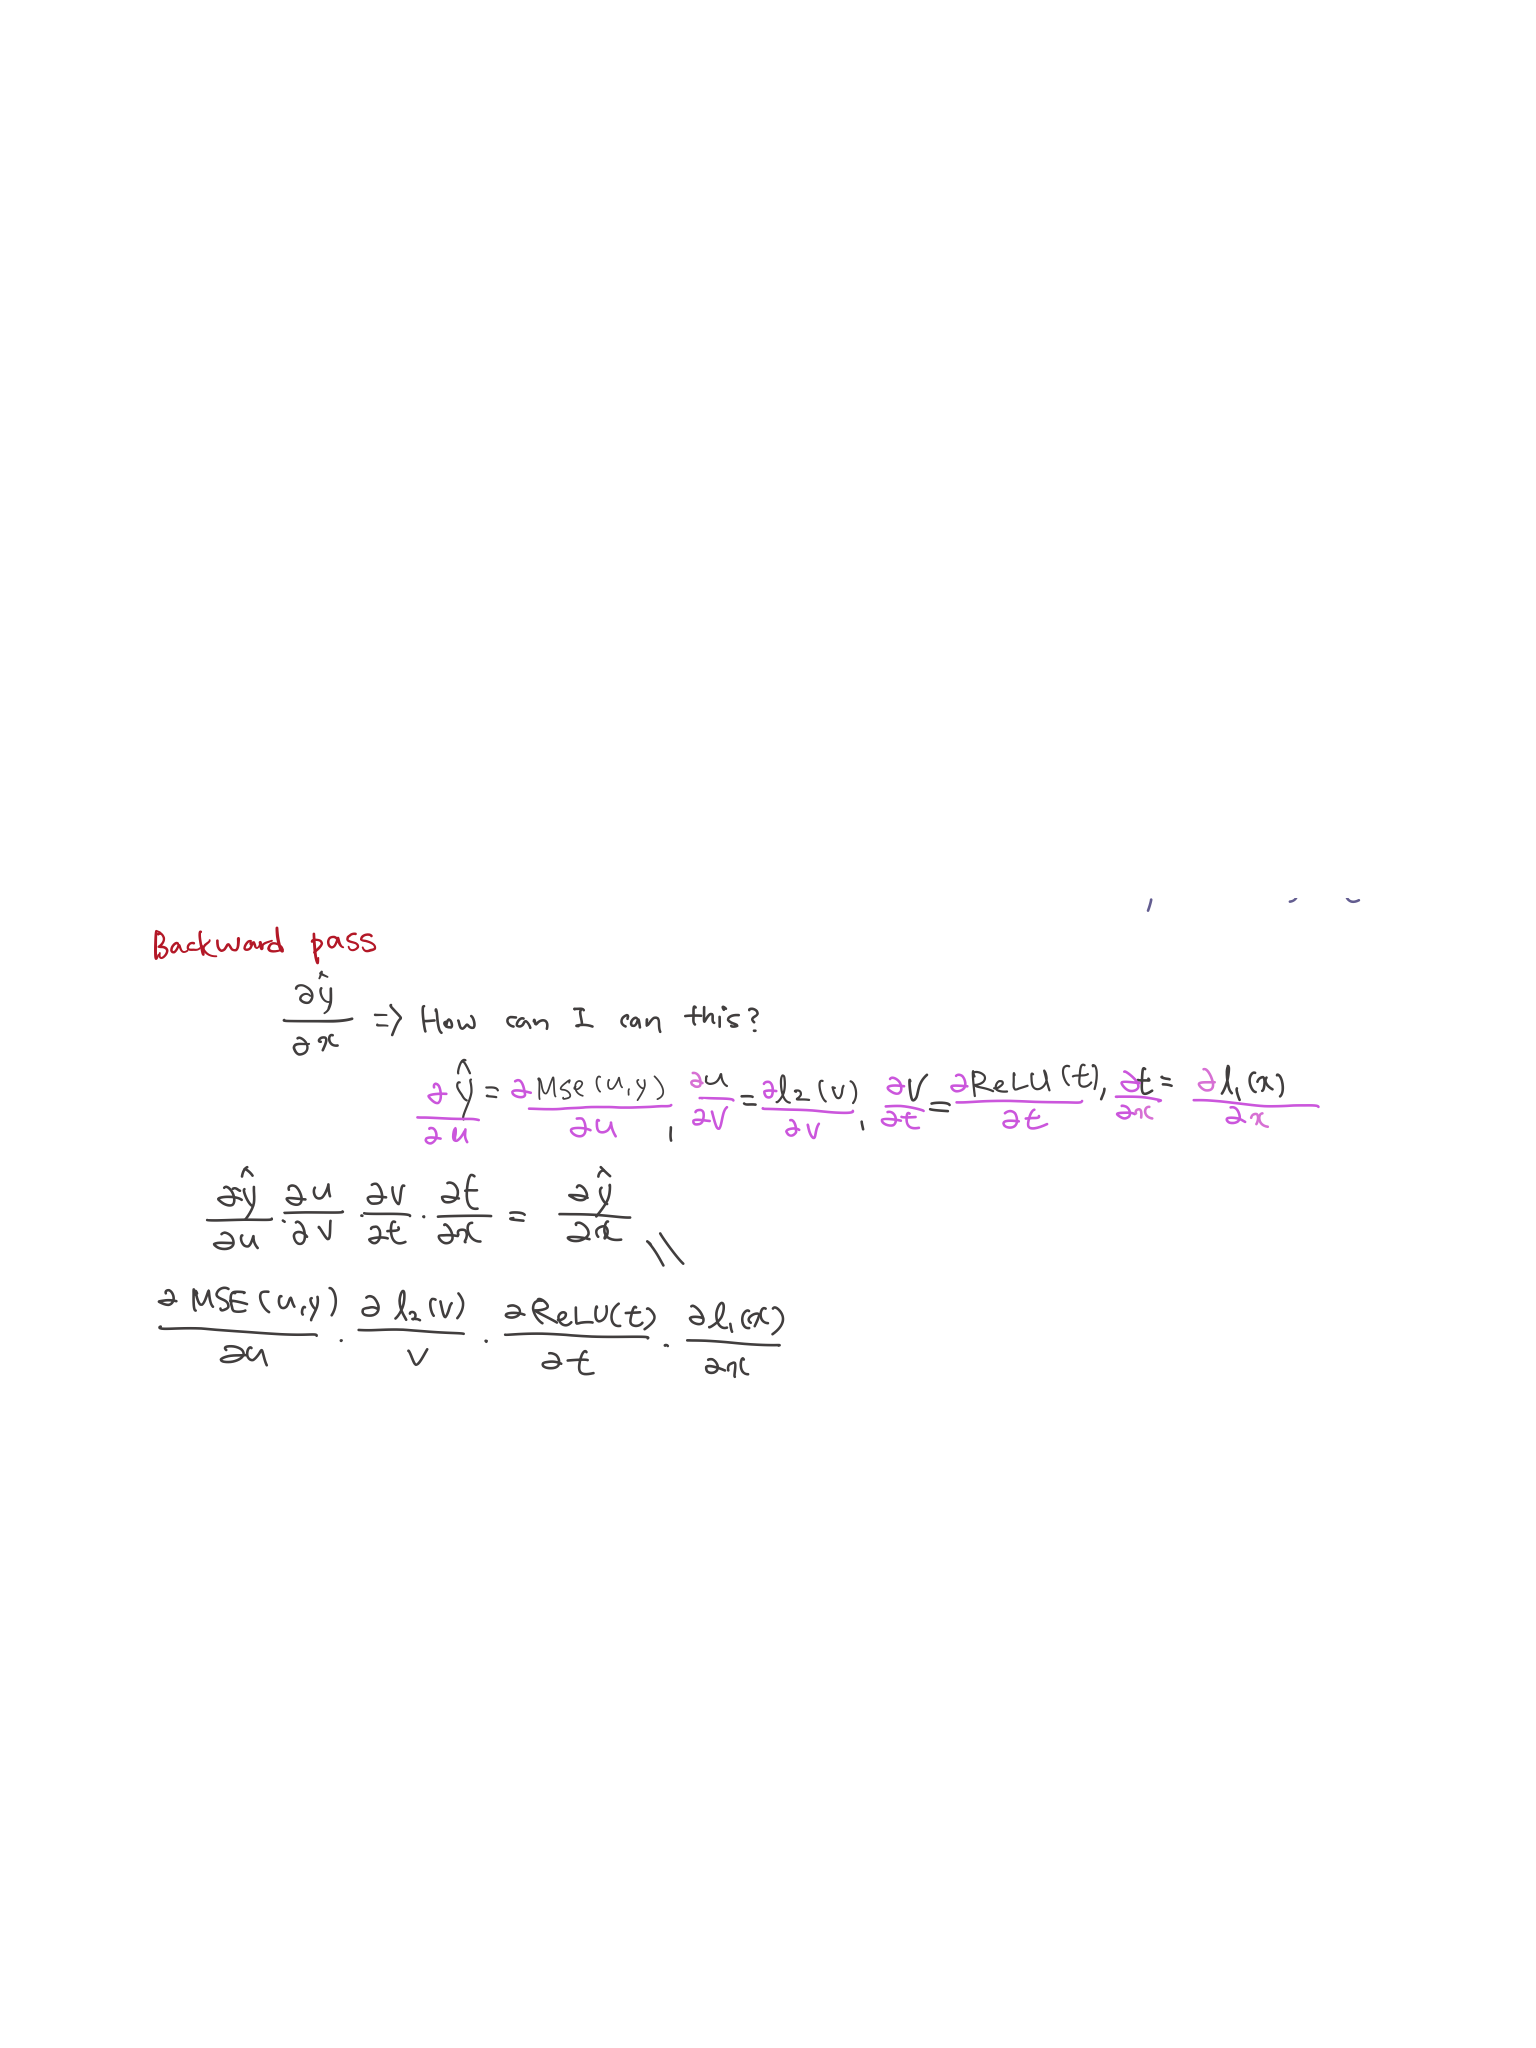 Backward pass
∂ŷ/∂x => How can I can this?
∂ŷ/∂u = ∂Mse(u,y)/∂u, ∂u/∂v = ∂l₂(v)/∂v, ∂v/∂t = ∂ReLU(t)/∂t, ∂t/∂x = ∂l₁(x)/∂x
∂ŷ/∂u · ∂u/∂v · ∂v/∂t · ∂t/∂x = ∂ŷ/∂x \\
∂MSE(u,y)/∂u · ∂l₂(v)/v · ∂ReLU(t)/∂t · ∂l₁(x)/∂x